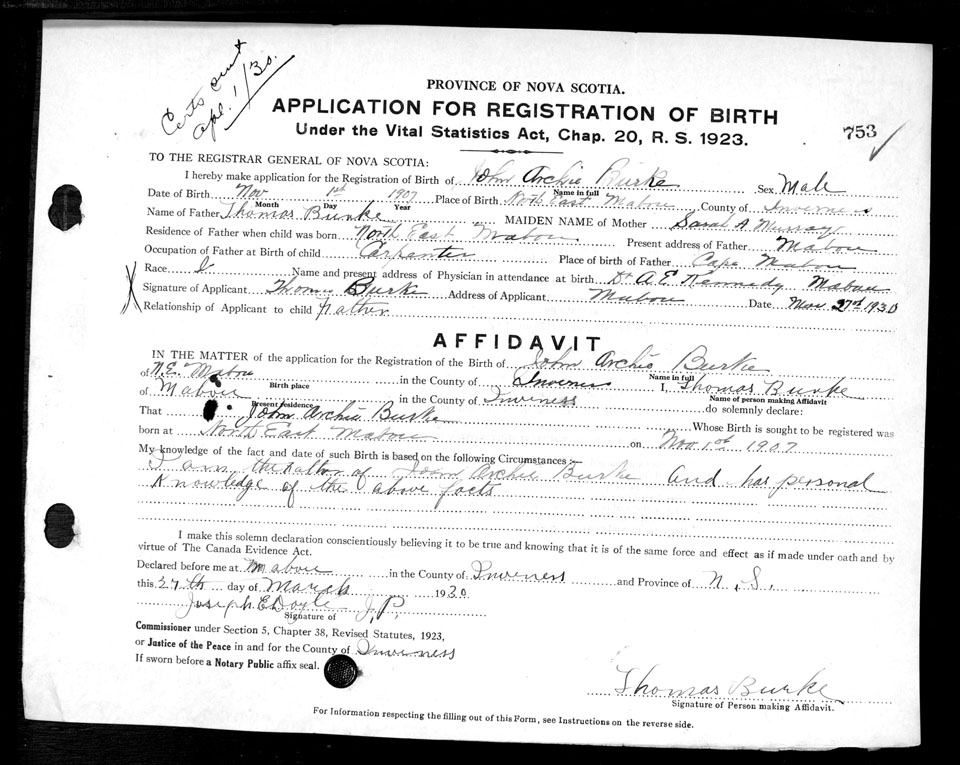 Certs sent
Apl. 1/30.
PROVINCE OF NOVA SCOTIA.
APPLICATION FOR REGISTRATION OF BIRTH
Under the Vital Statistics Act, Chap. 20, R. S. 1923.
753
TO THE REGISTRAR GENERAL OF NOVA SCOTIA:
I hereby make application for the Registration of Birth of John Archie Burke Sex Male
Name in full
Date of Birth Nov 1st 1907 Place of Birth North East Mabou County of Inverness
Month Day Year
Name of Father Thomas Burke MAIDEN NAME of Mother Sarah A Murray
Residence of Father when child was born North East Mabou Present address of Father Mabou
Occupation of Father at Birth of child Carpenter Place of birth of Father Cape Mabou
Race Name and present address of Physician in attendance at birth Dr A E Kennedy Mabou
Signature of Applicant Thomas Burke Address of Applicant Mabou Date Mar 27th 1930
Relationship of Applicant to child Father
AFFIDAVIT
IN THE MATTER of the application for the Registration of the Birth of John Archie Burke
Name in full
of N.E. Mabou in the County of Inverness I, Thomas Burke
Birth place Name of person making Affidavit
of Mabou in the County of Inverness do solemnly declare:
Present residence
That John Archie Burke Whose Birth is sought to be registered was
born at North East Mabou on Nov 1st 1907
My knowledge of the fact and date of such Birth is based on the following Circumstances:—
I am the Father of John Archie Burke and has personal
Knowledge of the above facts
I make this solemn declaration conscientiously believing it to be true and knowing that it is of the same force and effect as if made under oath and by
virtue of The Canada Evidence Act.
Declared before me at Mabou in the County of Inverness and Province of N.S.
this 27th day of March 1930
Joseph E Doyle J.P.
Signature of
Commissioner under Section 5, Chapter 38, Revised Statutes, 1923,
or Justice of the Peace in and for the County of Inverness
If sworn before a Notary Public affix seal.
Thomas Burke
Signature of Person making Affidavit.
For Information respecting the filling out of this Form, see Instructions on the reverse side.